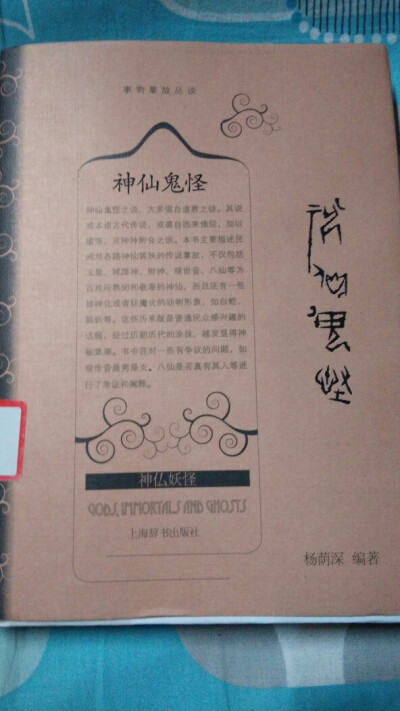 事物掌故丛谈
神仙鬼怪
神仙鬼怪之说，大多倡自道教之徒。其说
或本诸古代传说，或袭自西来佛经，加以
附会之说。本书主要描述民
间对各路神仙狐妖的传说掌故，不仅包括
玉皇、城隍神、财神、观世音、八仙等为
百姓所熟知和敬奉的神仙，而且还有一些
被神化或者妖魔化的动物形象，如白蛇、
狐妖等。这些历来就是普通民众感兴趣的
话题，经过历朝历代的涂抹，越发显得神
秘莫测。书中还对一些有争议的问题，如
观世音是男是女、八仙是否真有其人等进
行了考证和阐释。
神仏妖怪
GODS, IMMORTALS AND GHOSTS
上海辞书出版社
神仙鬼怪
杨荫深 编著